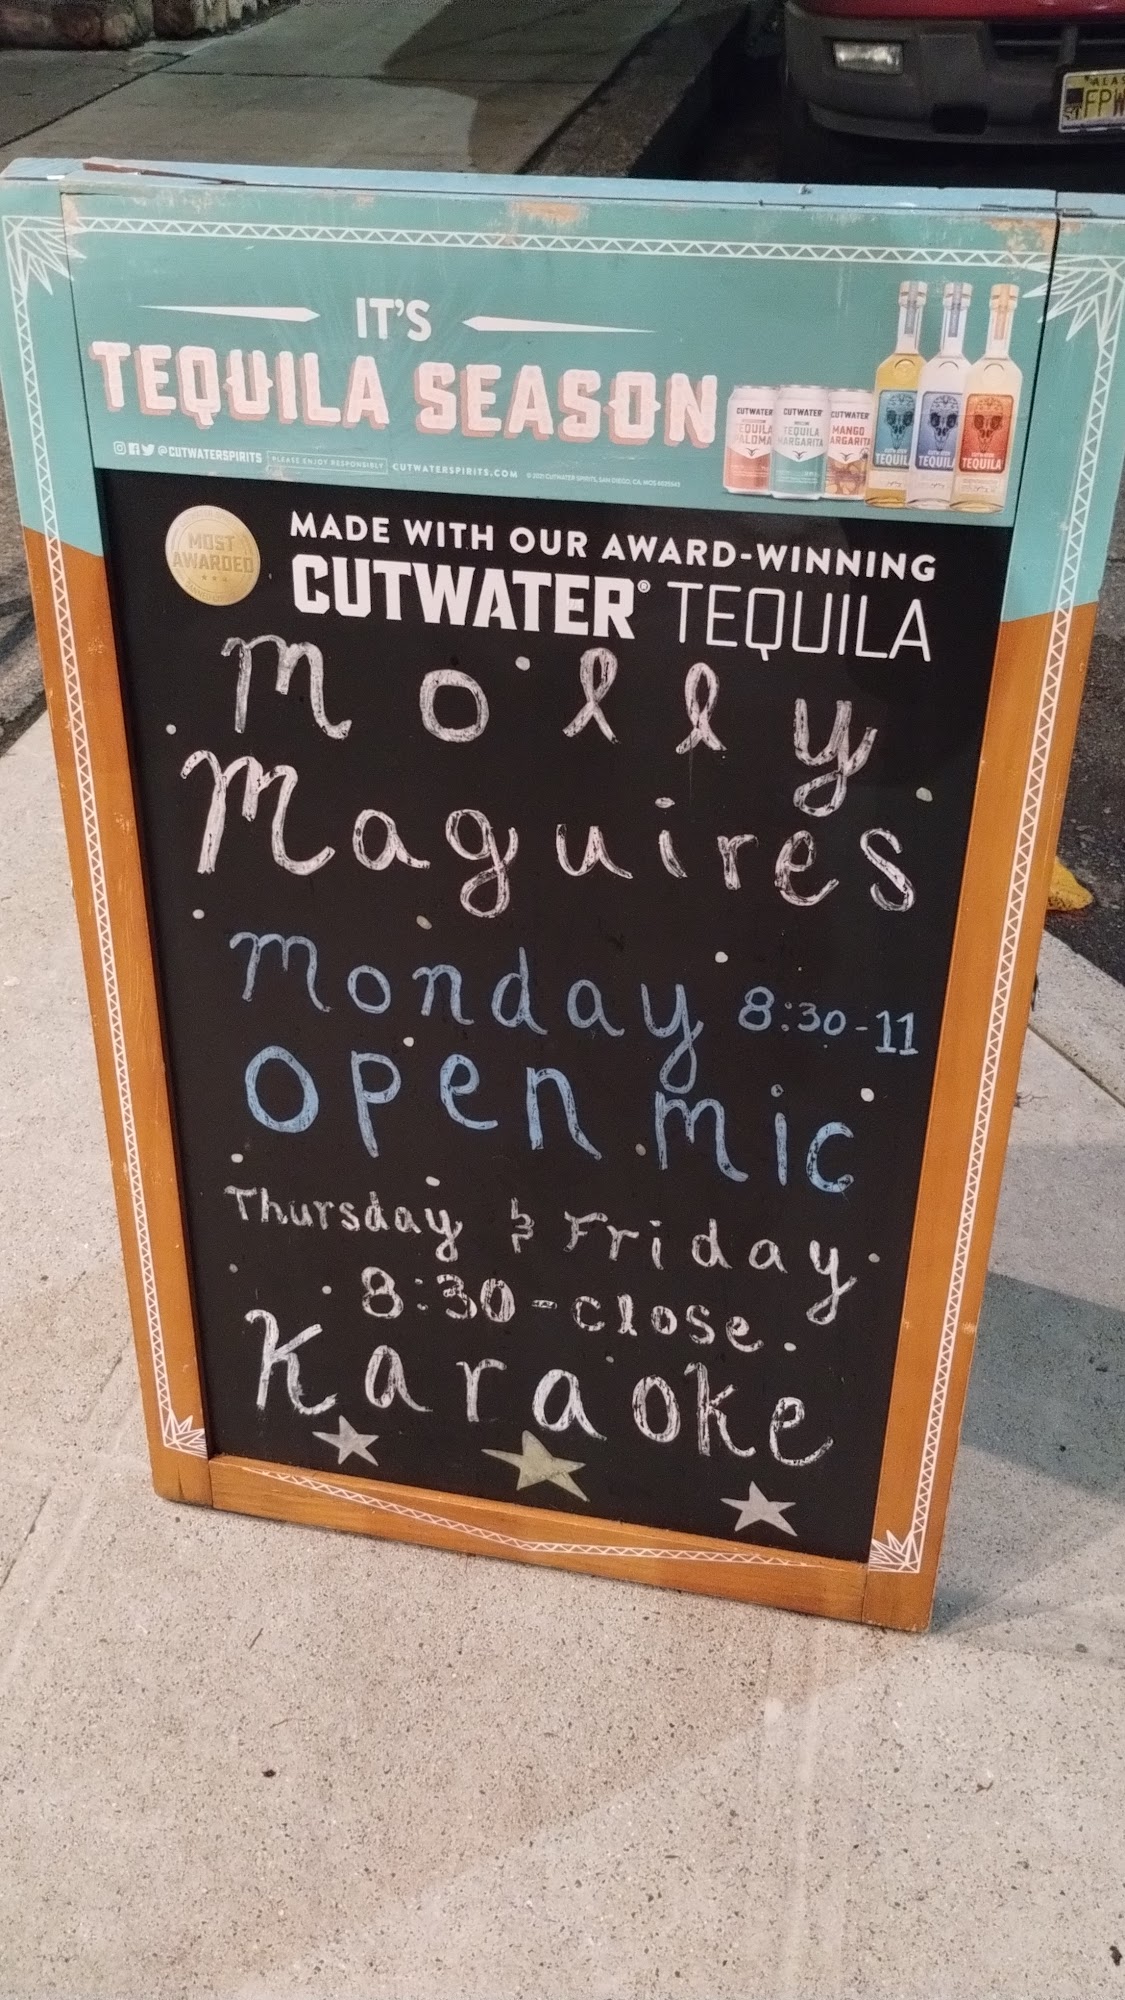 ALAS
FPW
IT'S
TEQUILA SEASON
@CUTWATERSPIRITS PLEASE ENJOY RESPONSIBLY CUTWATERSPIRITS.COM
CUTWATER
TEQUILA
PALOMA
CUTWATER
TEQUILA
MARGARITA
CUTWATER
MANGO
MARGARITA
TEQUILA
TEQUILA
TEQUILA
MOST
AWARDED
MADE WITH OUR AWARD-WINNING
CUTWATER® TEQUILA
Molly
Maguires
Monday 8:30-11
Open mic
Thursday & Friday
8:30-close
Karaoke